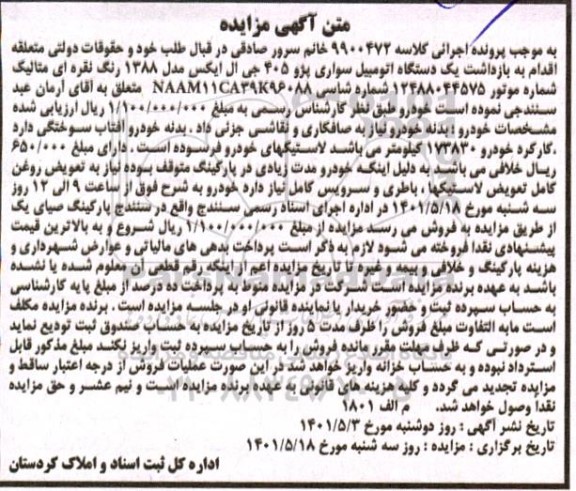 متن آگهی مزایده
به موجب پرونده اجرائی کلاسه ۹۹۰۰۴۷۲ خانم سرور صادقی در قبال طلب خود و حقوقات دولتی متعلقه
اقدام به بازداشت یک دستگاه اتومبیل سواری پژو ۴۰۵ جی ال ایکس مدل ۱۳۸۸ رنگ نقره ای متالیک
شماره موتور ۱۲۴۸۸۰۴۴۵۷۵ شماره شاسی NAAM۱۱CA۳۹K۹۶۰۸۸ متعلق به آقای آرمان عبد
سنندجی نموده است و طبق نظر کارشناس رسمی به مبلغ ۱/۱۰۰/۰۰۰/۰۰۰ ریال ارزیابی شده
مشخصات خودرو : بدنه خودرو نیاز به صافکاری و نقاشی جزئی داد . بدنه خودرو آفتاب سوختگی دارد
.کارکرد خودرو ۱۷۳۸۳۰ کیلومتر می باشد لاستیکهای خودرو فرسوده است . دارای مبلغ ۶۵۰/۰۰۰
ریال خلافی می باشد. به دلیل اینکه خودرو مدت زیادی در پارکینگ متوقف بوده نیاز به تعویض روغن
کامل تعویض لاستیکها ، باطری و سرویس کامل نیاز دارد خودرو به شرح فوق از ساعت ۹ الی ۱۲ روز
سه شنبه مورخ ۱۴۰۱/۵/۱۸ در اداره اجرای اسناد رسمی سنندج واقع در سنندج پارکینگ صبای یک
از طریق مزایده به فروش می رسد مزایده از مبلغ ۱/۱۰۰/۰۰۰/۰۰۰ ریال شروع و به بالاترین قیمت
پیشنهادی نقدا فروخته می شود لازم به ذکر است پرداخت بدهی های مالیاتی و عوارض شهرداری و
هزینه پارکینگ و خلافی و بیمه و غیره تا تاریخ مزایده اعم از اینکه رقم قطعی آن معلوم شده یا نشده
باشد به عهده برنده مزایده است شرکت در مزایده منوط به پرداخت ده درصد از مبلغ پایه کارشناسی
به حساب سپرده ثبت و حضور خریدار یا نماینده قانونی او در جلسه مزایده است . برنده مزایده مکلف
است مابه التفاوت مبلغ فروش را ظرف مدت ۵ روز از تاریخ مزایده به حساب صندوق ثبت تودیع نماید
و در صورتی که ظرف مهلت مقرر مانده فروش را به حساب سپرده ثبت واریز نکند مبلغ مذکور قابل
استرداد نبوده و به حساب خزانه واریز خواهد شد در این صورت عملیات فروش از درجه اعتبار ساقط و
مزایده تجدید می گردد و کلیه هزینه های قانونی به عهده برنده مزایده است و نیم عشر و حق مزایده
نقدا وصول خواهد شد. م الف ۱۸۰۱
تاریخ نشر آگهی : روز دوشنبه مورخ ۱۴۰۱/۵/۳
تاریخ برگزاری : مزایده : روز سه شنبه مورخ ۱۴۰۱/۵/۱۸
اداره کل ثبت اسناد و املاک کردستان